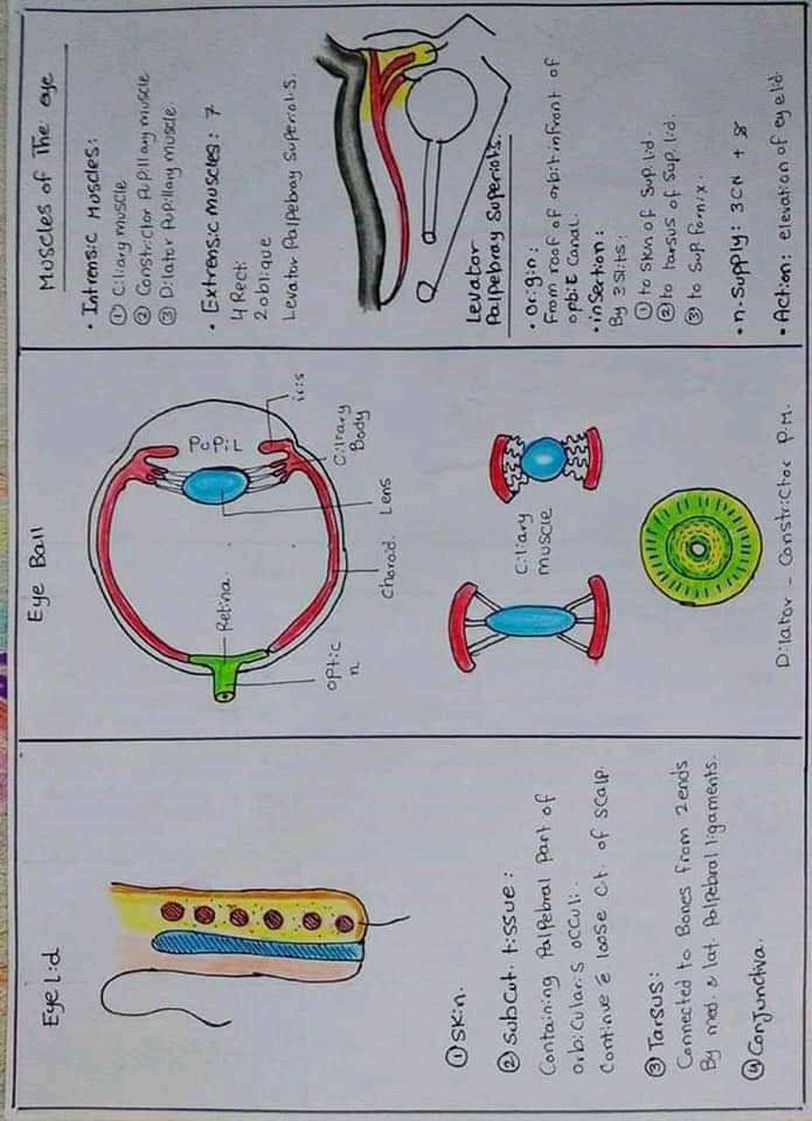 Eye Lid
① Skin.
② Subcut. tissue:
Containing Palpebral Part of
orbicularis occuli.
Continue ē loose C.t. of scalp.
③ Tarsus:
Connected to Bones from 2 ends
By med. & lat. Palpebral ligaments.
④ Conjunctiva.
Eye Ball
PuPiL
iris
Ciliary
Body
Lens
Choroid.
Retina.
optic
n
Ciliary
muscle
Dilator - Constrictor P.M.
Muscles of The eye
• Intrensic Muscles:
① Ciliary muscle
② Constrictor Pupillary muscle
③ Dilator Pupillary muscle.
• Extrensic muscles: 7
4 Recti
2 oblique
Levator Palpebray Superioris.
Levator
Palpebray Superioris.
• origin:
From roof of orbit infront of
optic Canal.
• insertion:
By 3 Slits:
① to skin of Sup. lid.
② to tarsus of Sup. lid.
③ to Sup. Fornix.
• n. supply: 3 CN +
• Action: elevation of eyelid.